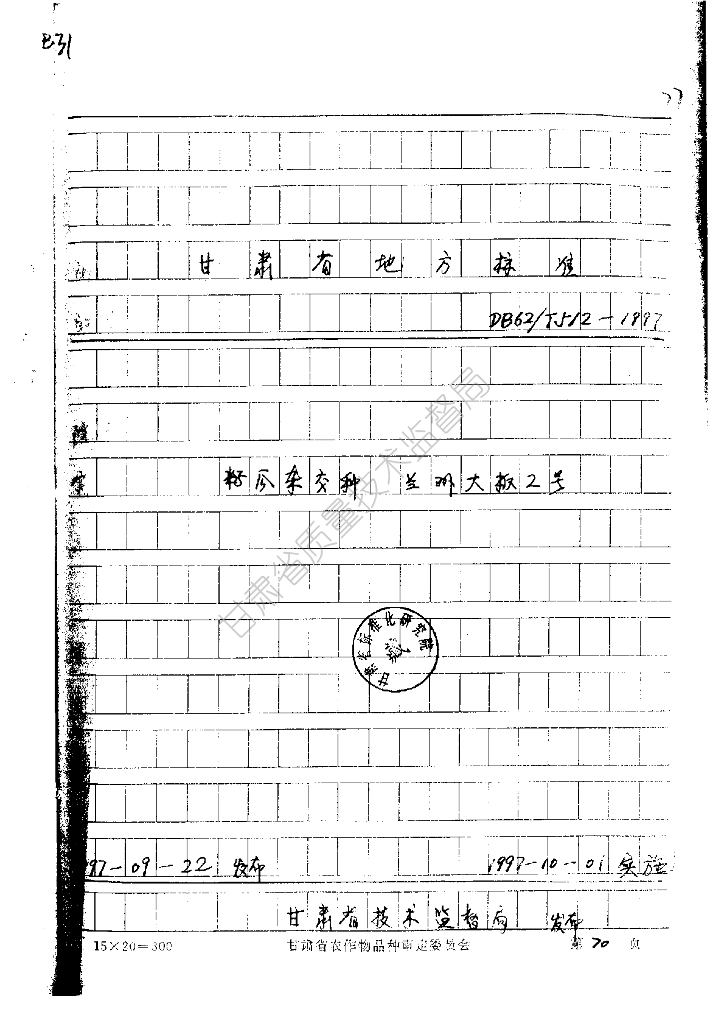 B31
77
甘肃省地方标准
DB62/T512-1997
籽瓜杂交种 兰州大板2号
甘肃省质量技术监督局
甘肃省标准化研究院
藏
97-09-22 发布
1997-10-01 实施
甘肃省技术监督局 发布
15×20=300
甘肃省农作物品种审定委员会
第 70 页